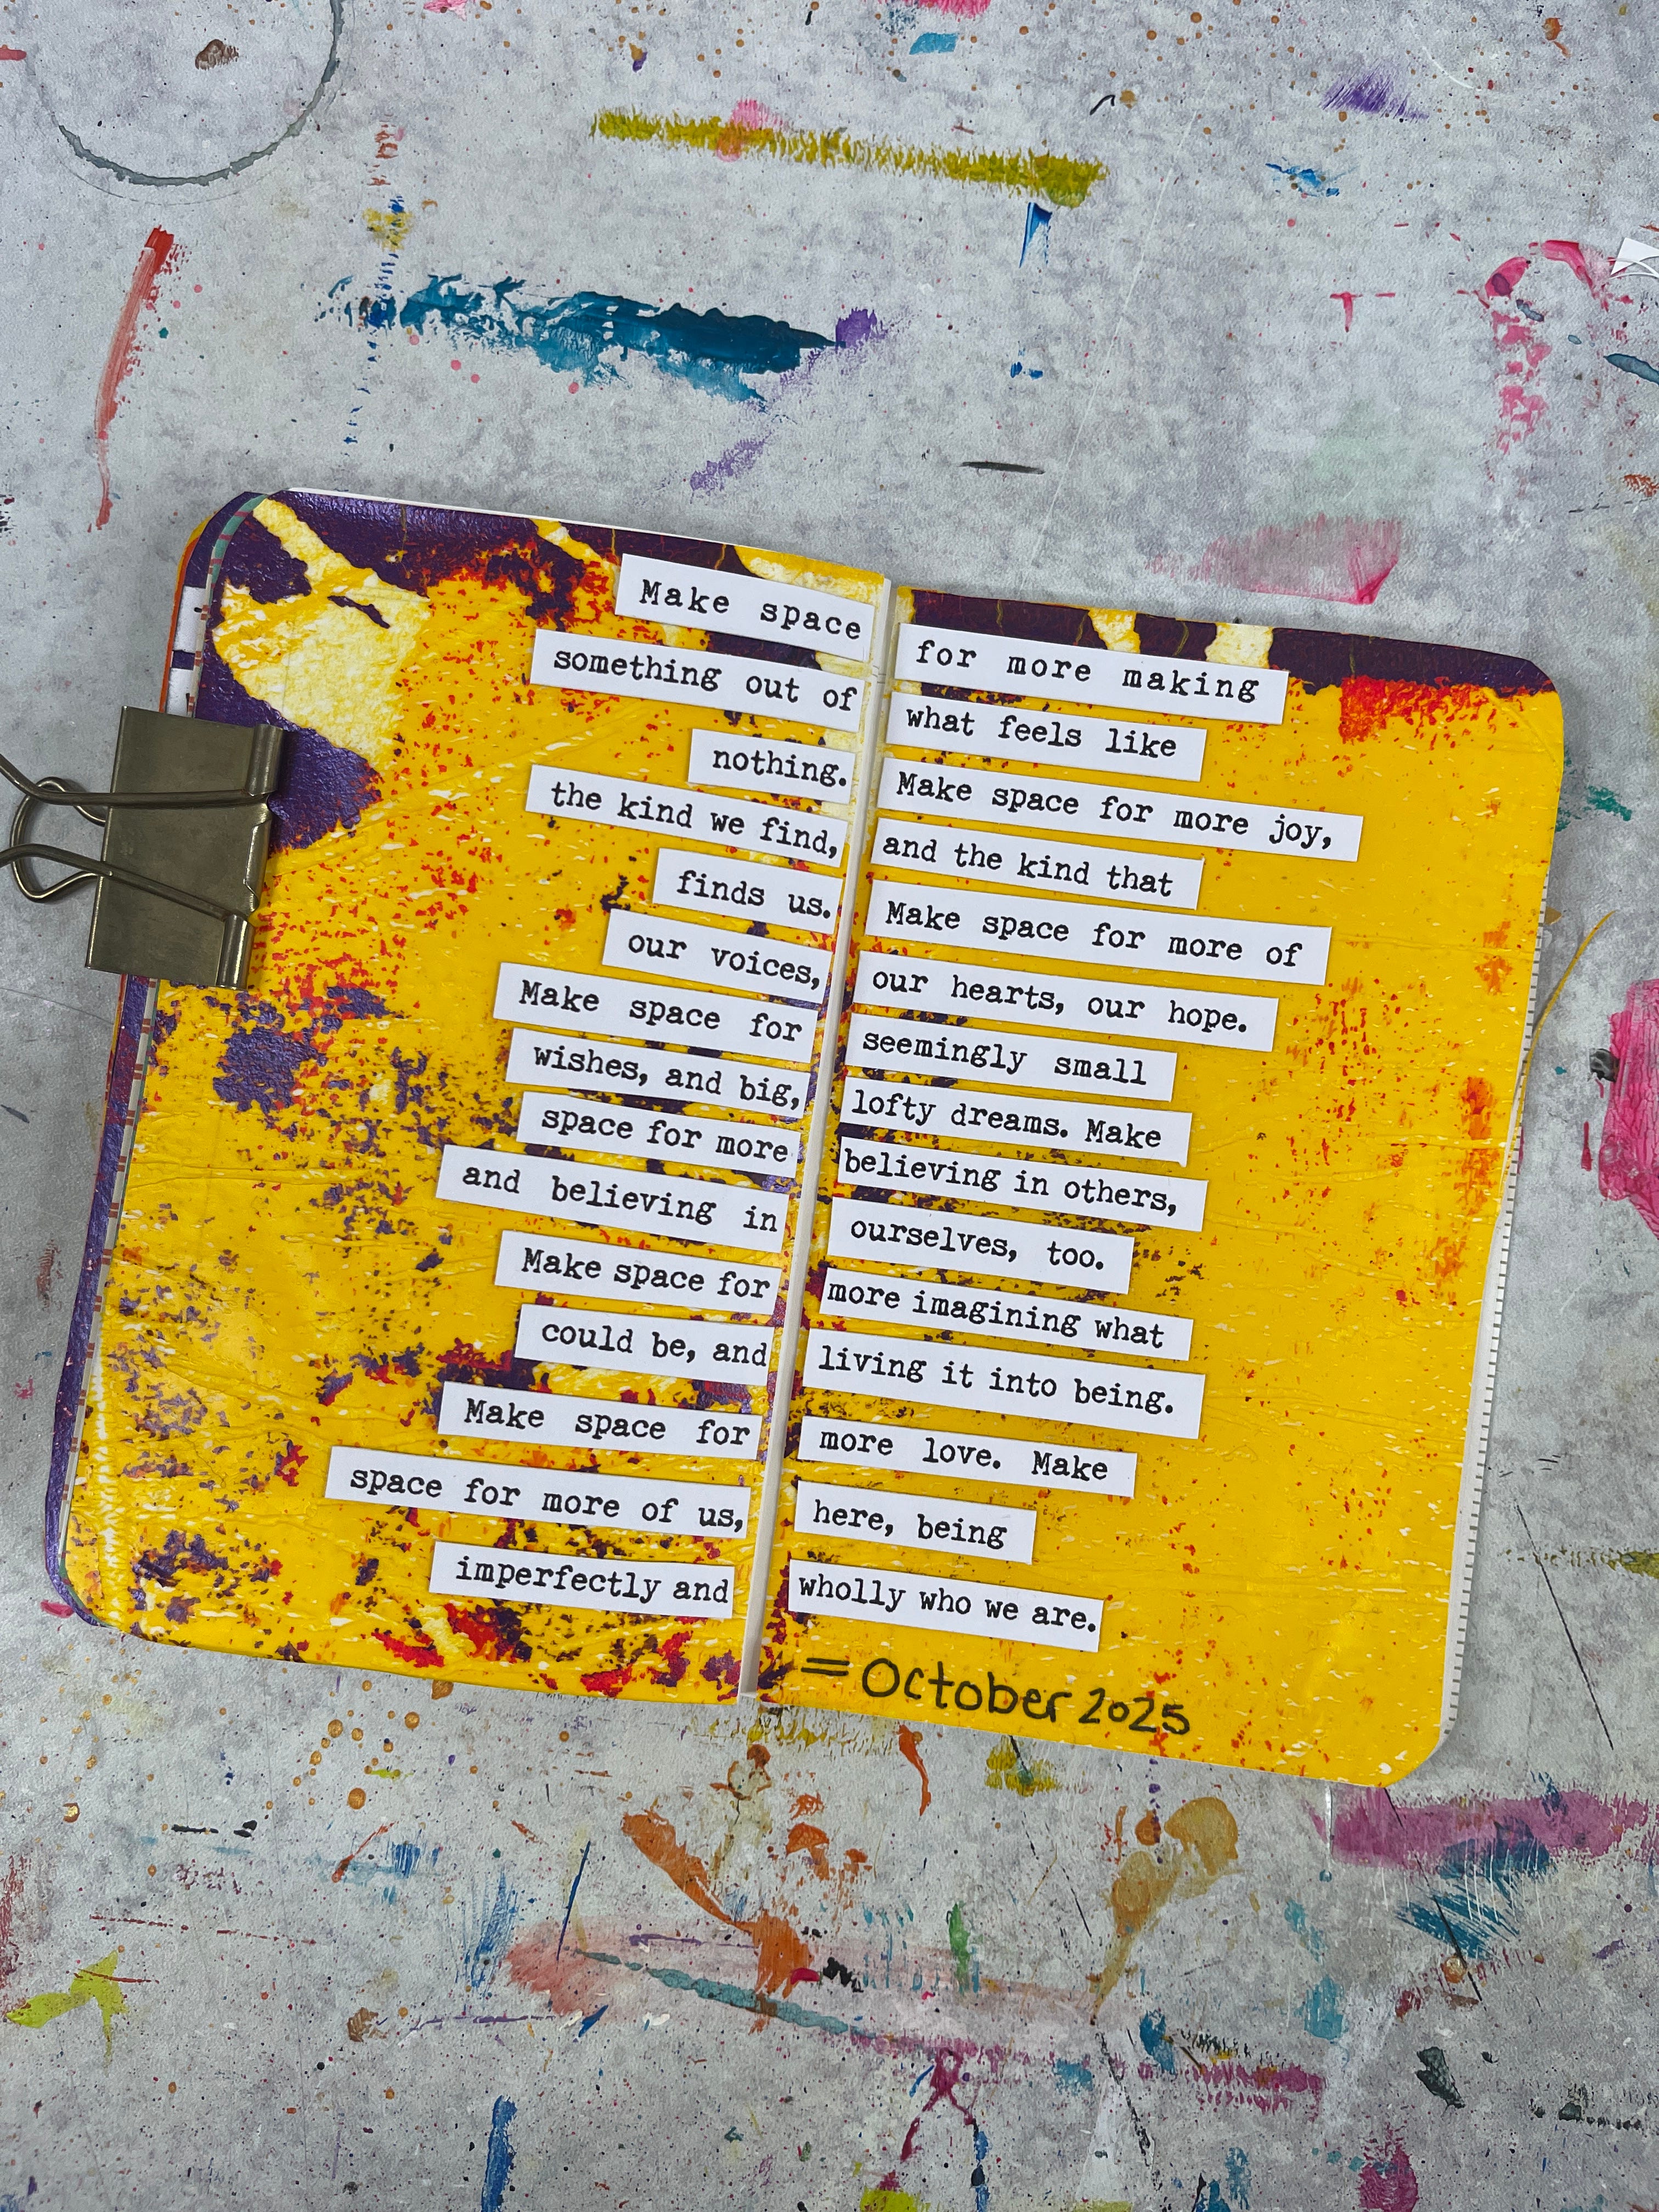 Make space for more making
something out of what feels like
nothing. Make space for more joy,
the kind we find, and the kind that
finds us. Make space for more of
our voices, our hearts, our hope.
Make space for seemingly small
wishes, and big, lofty dreams. Make
space for more believing in others,
and believing in ourselves, too.
Make space for more imagining what
could be, and living it into being.
Make space for more love. Make
space for more of us, here, being
imperfectly and wholly who we are.
= October 2025